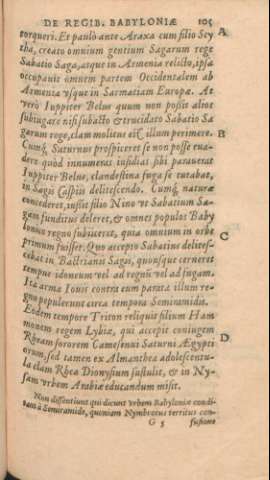 DE REGIB. BABYLONIÆ 105
torqueri. Et paulò ante Araxa cum filio Scy A
tha, creato omnium gentium Sagarum rege
Sabatio Saga, atque in Armenia relicto, ipsa
occupauit omnem partem Occidentalem ab
Armenia vsque in Sarmatiam Europæ. At
verò Iuppiter Belus quum non possit alios
subiugare nisi subacto & trucidato Sabatio Sa
garum rege, clam molitus est illum perimere. B
Cumq́; Saturnus prospiceret se non posse eua-
dere quòd innumeras insidias sibi parauerat
Iuppiter Belus, clandestina fuga se tutabat,
in Sagis Caspijs delitescendo. Cumq́; naturæ
concederet, iussit filio Nino vt Sabatium Sa-
gam funditus deleret, & omnes populos Baby
lonico regno subijceret, quia omnium in orbe
primum fuisset. Quo accepto Sabatius delites- C
cebat in Bactrianis Sagis, quousque cerneret
tempus idoneum vel ad regnũ vel ad fugam.
Ita arma Iouis contra eum parata illum re-
gno pepulerunt circa tempora Semiramidis.
Eodem tempore Triton reliquit filium Ham
monem regem Lybiæ, qui accepit coniugem
Rheam sororem Camesenui Saturni Ægypti D
orum, sed tamen ex Almanthea adolescentu-
la clam Rhea Dionysium sustulit, & in Ny-
sam vrbem Arabiæ educandum misit.
Non dissentiunt qui dicunt vrbem Babyloniæ condi-
tam à Semiramide, quoniam Nymbrotus territus con-
G 5 fusione